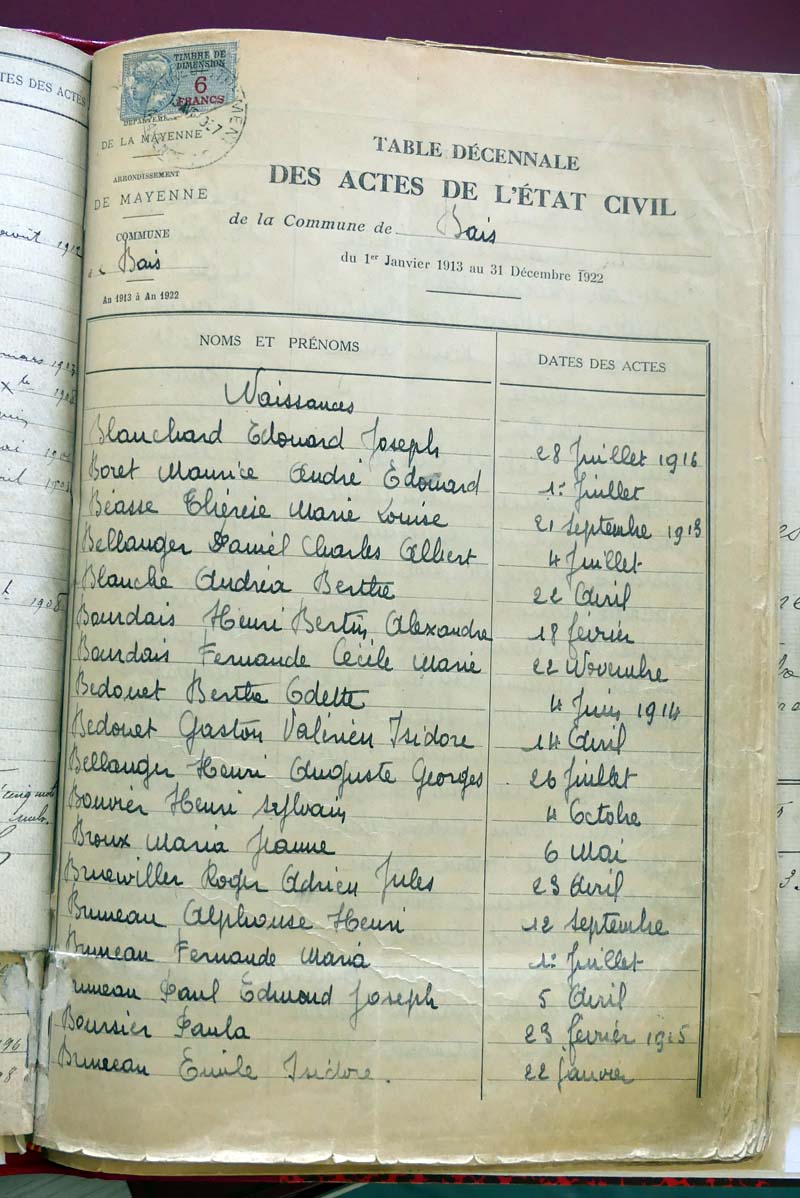 TES DES ACTES
TIMBRE DE
DIMENSION
6
FRANCS
DÉPARTEMENT
DE LA MAYENNE
ARRONDISSEMENT
DE MAYENNE
COMMUNE
de Bais
An 1913 à An 1922
TABLE DÉCENNALE
DES ACTES DE L'ÉTAT CIVIL
de la Commune de Bais
du 1er Janvier 1913 au 31 Décembre 1922
NOMS ET PRÉNOMS DATES DES ACTES
Naissances
Blanchard Edouard Joseph 28 Juillet 1916
Boret Maurice André Edouard 1er Juillet
Béasse Thérèse Marie Louise 21 Septembre 1913
Bellanger Daniel Charles Albert 4 Juillet
Blanche Andréa Berthe 22 Avril
Bourdais Henri Bertin Alexandre 18 février
Bourdais Fernande Cécile Marie 22 Novembre
Bedouet Berthe Odette 4 Juin 1914
Bedouet Gaston Valérien Isidore 14 Avril
Bellanger Henri Auguste Georges 26 Juillet
Bouvier Henri Sylvain 4 Octobre
Broux Maria Jeanne 6 Mai
Bruewiller Roger Adrien Jules 23 Avril
Bruneau Alphonse Henri 12 Septembre
Bruneau Fernande Maria 1er Juillet
runeau Paul Edmond Joseph 5 Avril
Boursier Paula 23 février 1915
Bruneau Emile Isidore. 22 Janvier